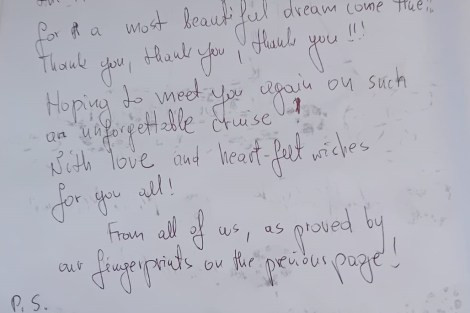 for a most beautiful dream come true..
Thank you, thank you, thank you!!!
Hoping to meet you again on such
an unforgettable cruise!
With love and heart-felt wiches
for you all!
From all of us, as proved by
our fingerprints on the previous page!
P.S.